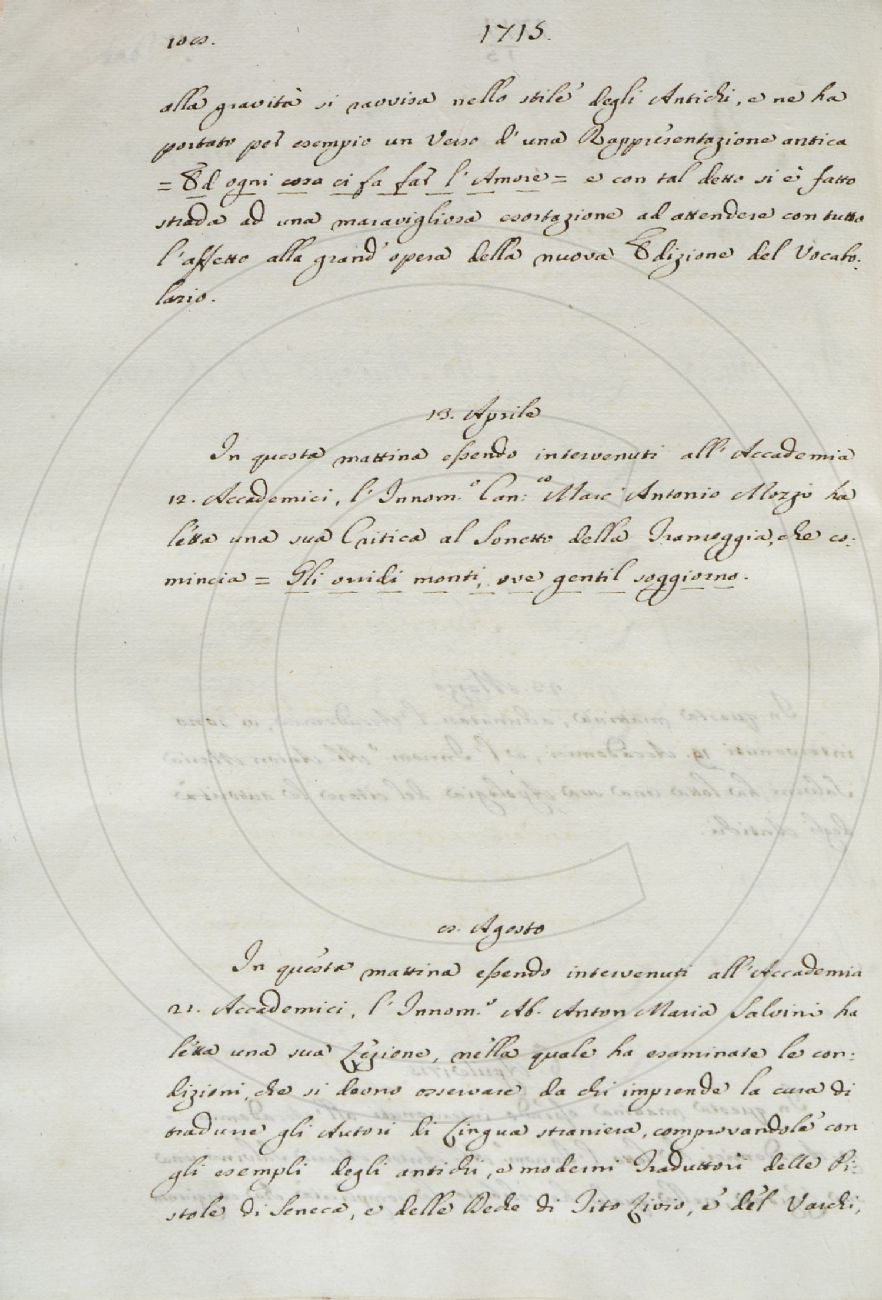 1715.
alla gravità si ravvisa nello stile degli Antichi, e ne ha
portato per esempio un Verso d'una Rappresentazione antica
= Ed ogni cosa ci fa far l'Amore = e con tal detto si è fatto
strada ad una maravigliosa esortazione ad attendere con tutto
l'affetto alla grand'opera della nuova Edizione del Vocabo:
lario.
13. Aprile
In questa mattina essendo intervenuti all'Accademia
12. Accademici, l'Innom.º Can:co Marc'Antonio Mozzi ha
letta una sua Critica al Sonetto della Tramoggia, che co:
mincia = Gli ovidi monti, ove gentil soggiorno.
Agosto
In questa mattina essendo intervenuti all'Accademia
21. Accademici, l'Innom.º Ab. Anton Maria Salvini ha
letta una sua Lezione, nella quale ha esaminate le con:
dizioni, che si devno osservare da chi imprende la cura di
tradurre gli Autori di Lingua straniera, comprovandole con
gli esempli degli antichi, e moderni Traduttori delle Pi:
stole di Seneca, e delle Deche di Tito Livio, e del Varchi,